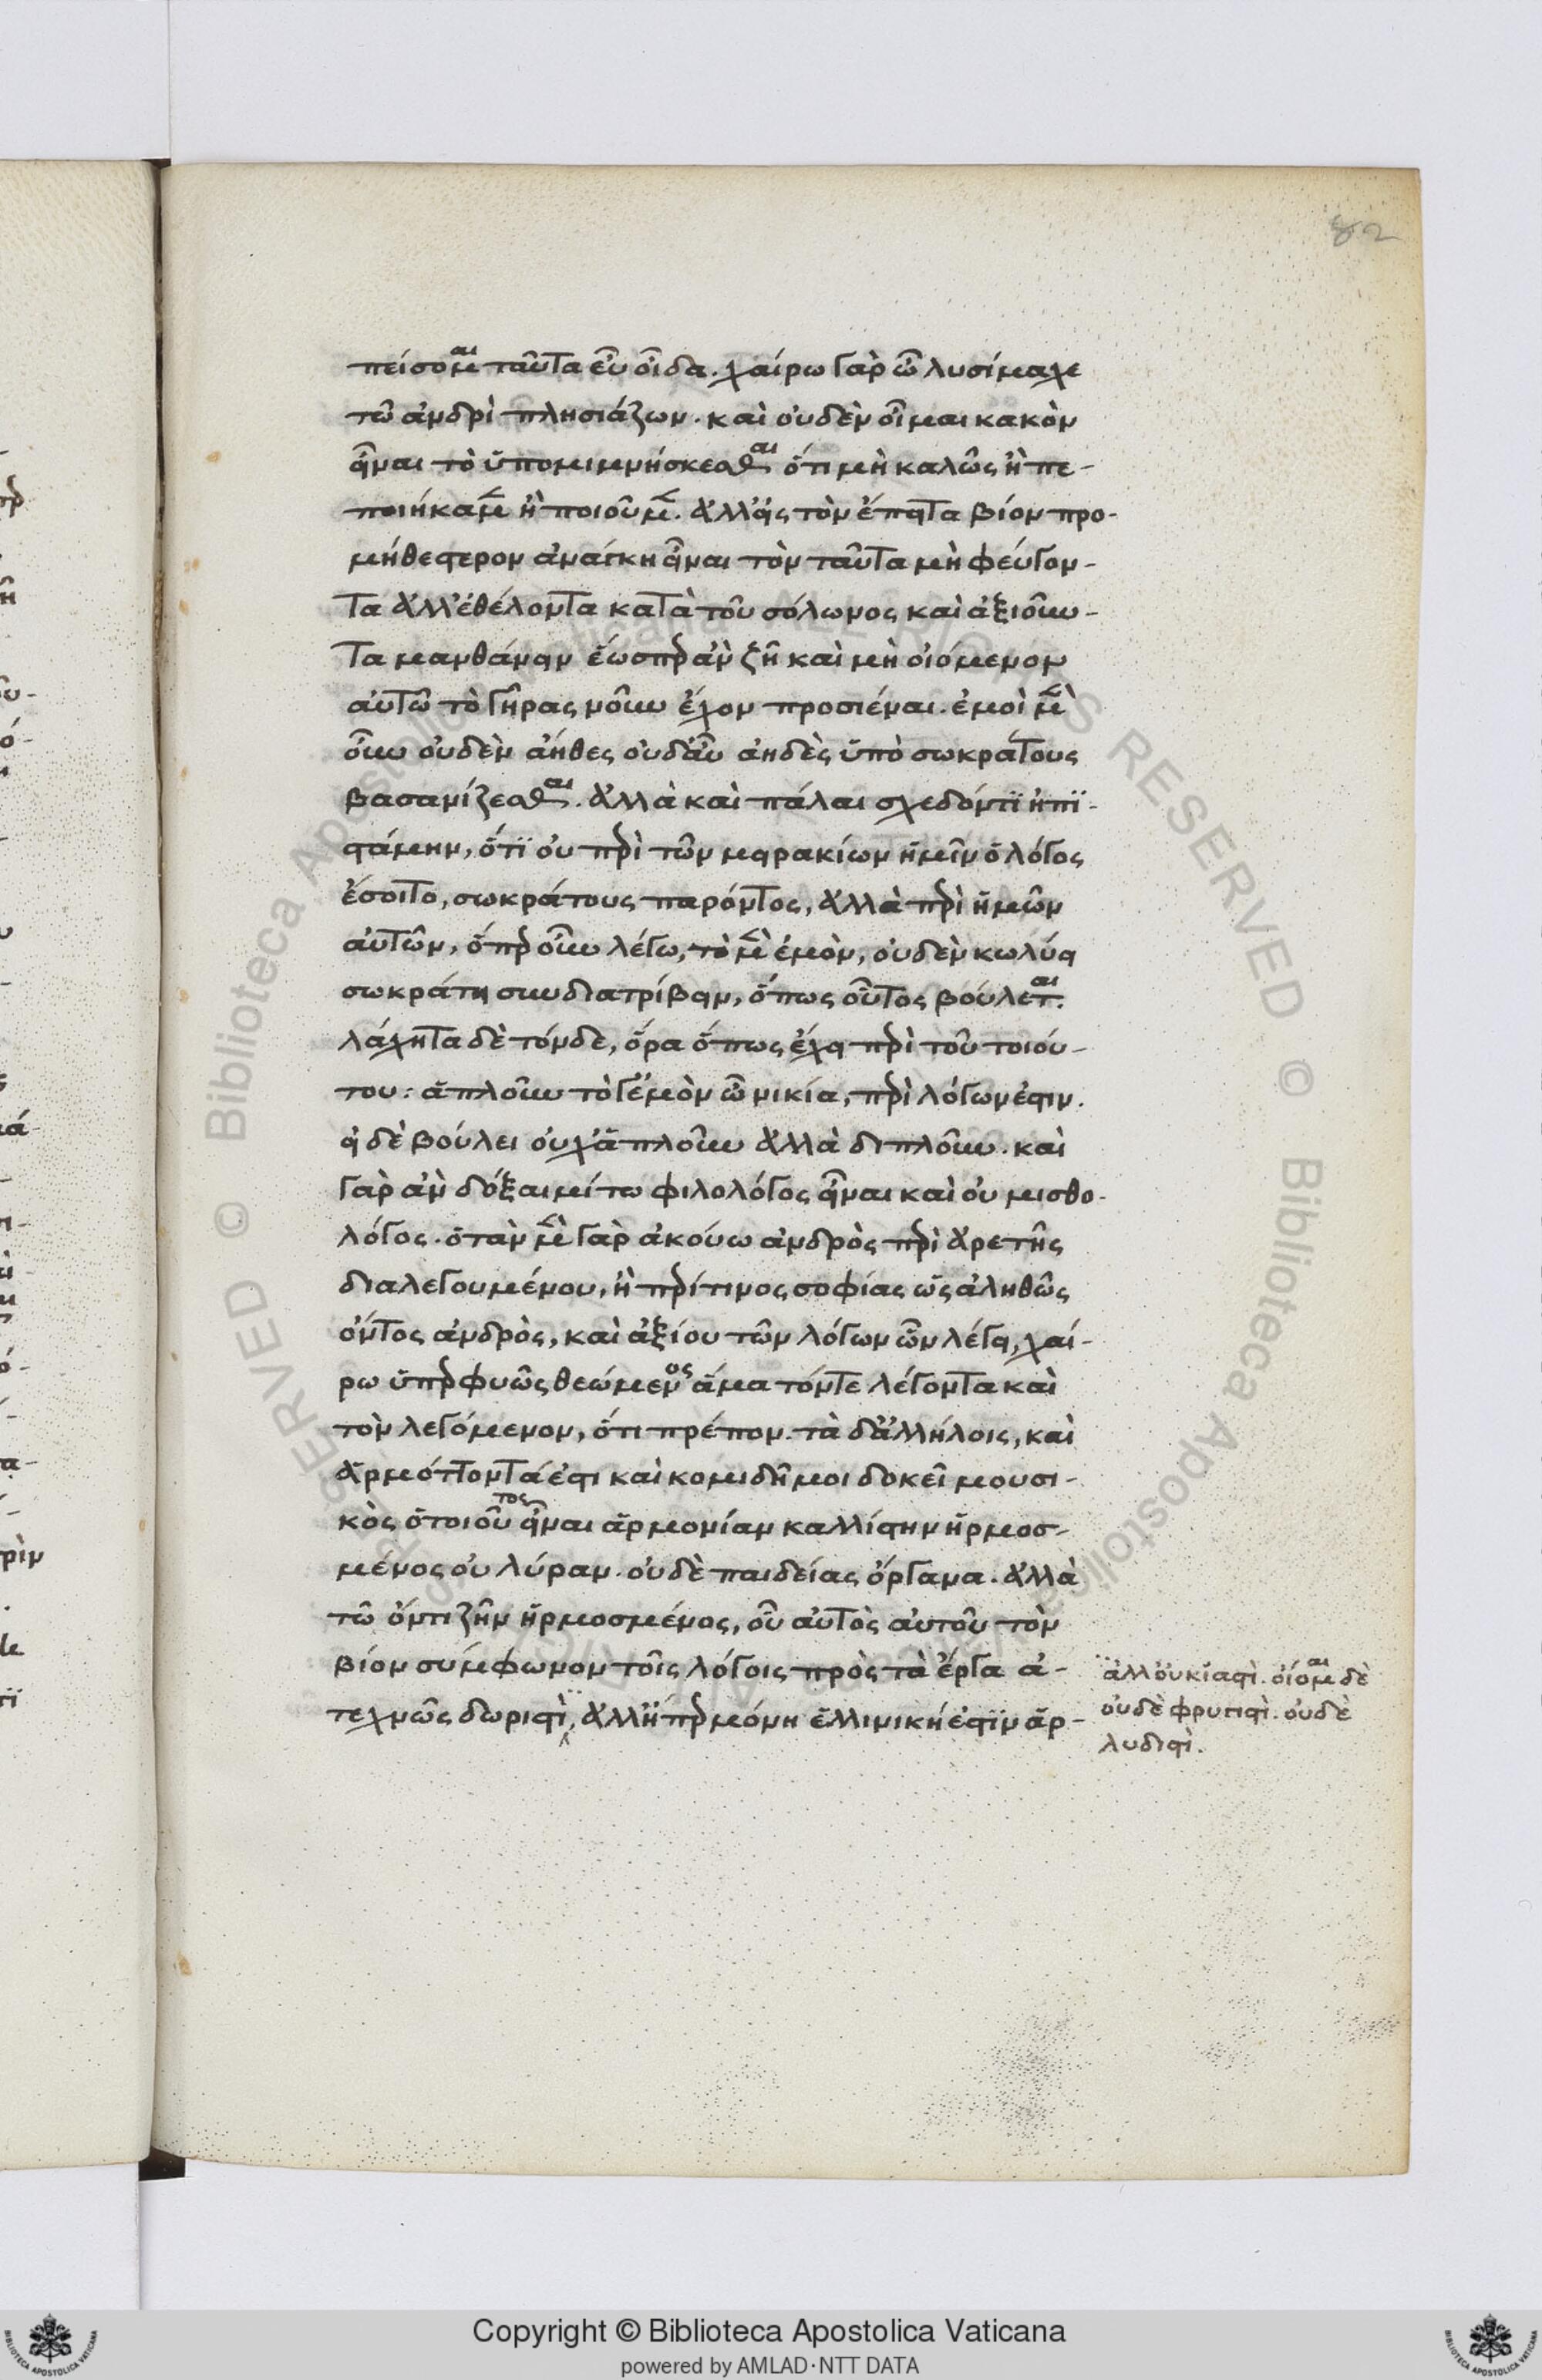 82
πείσομαι ταῦτα εὖ οἶδα. χαίρω γὰρ ὦ λυσίμαχε
τῶ ἀνδρὶ πλησιάζων. καὶ οὐδὲν οἶμαι κακὸν
εἶναι τὸ ὑπομιμνήσκεσθαι ὅτι μὴ καλῶς ἢ πε-
ποιήκαμεν ἢ ποιοῦμεν. ἀλλ' εἰς τὸν ἔπειτα βίον προ-
μηθέστερον ἀνάγκη εἶναι τὸν ταῦτα μὴ φεύγον-
τα ἀλλ' ἐθέλοντα κατὰ τοῦ σόλωνος καὶ ἀξιοῦν-
τα μανθάνειν ἕωσπερ ἂν ζῆ καὶ μὴ οἰόμενον
αὐτῶ τὸ γῆρας νοῦν ἔχον προσιέναι. ἐμοὶ μὲν
οὖν οὐδὲν ἄηθες οὐδ' αὖ ἀηδὲς ὑπὸ σωκράτους
βασανίζεσθαι. ἀλλὰ καὶ πάλαι σχεδόν τϊ ἠπϊ-
στάμην, ὅτϊ οὐ περὶ τῶν μειρακίων ἡμῖν ὁ λόγος
ἔσοιτο, σωκράτους παρόντος, ἀλλὰ περὶ ἡμῶν
αὐτῶν, ὅπερ οὖν λέγω, τὸ μὲν ἐμὸν, οὐδὲν κωλύει
σωκράτη συνδιατρίβειν, ὅπως οὗτος βούλεται.
λάχητα δὲ τόνδε, ὅρα ὅπως ἔχει περὶ τοῦ τοιού-
του: ἁπλοῦν τό γ' ἐμὸν ὦ νικία, περὶ λόγων ἐστιν.
εἰ δὲ βούλει οὐχ ἁπλοῦν ἀλλὰ διπλοῦν. καὶ
γὰρ ἂν δόξαιμί τω φιλολόγος εἶναι καὶ οὐ μισθο-
λόγος. ὅταν μὲν γὰρ ἀκούω ἀνδρὸς περὶ ἀρετῆς
διαλεγουμένου, ἢ περί τινος σοφίας ὡς ἀληθῶς
ὄντος ἀνδρὸς, καὶ ἀξίου τῶν λόγων ὧν λέγει, χαί-
ρω ὑπερφυῶς θεώμενος ἅμα τόν τε λέγοντα καὶ
τὸν λεγόμενον, ὅτι πρέπον. τὰ δ' ἀλλήλοις, καὶ
ἁρμόττοντά ἐστι καὶ κομιδῆ μοι δοκεῖ μουσι-
κὸς ὁ τοιοῦτος εἶναι ἁρμονίαν καλλίστην ἡρμοσ-
μένος οὐ λύραν. οὐδὲ παιδείας ὄργανα. ἀλλὰ
τῶ ὄντι ζῆν ἡρμοσμένος, οὗ αὐτὸς αὑτοῦ τὸν
βίον σύμφωνον τοῖς λόγοις πρὸς τὰ ἔργα ἀ-
τεχνῶς δωριστὶ, ἀλλ' ἥπερ μόνη ἑλληνική ἐστϊν ἁρ-
ἀλλ' οὐκ ἰαστὶ. οἴομαι δὲ
οὐδὲ φρυγιστὶ. οὐδὲ
λυδιστὶ.
Copyright © Biblioteca Apostolica Vaticana
powered by AMLAD·NTT DATA